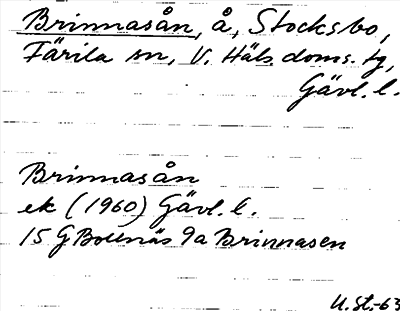 Brinnasån, å, Stocksbo,
Färila sn, V. Häls. doms. tg,
Gävl. l.
Brinnasån
ek (1960) Gävl. l.
15 G Bollnäs 9a Brinnasen
U.St.-63